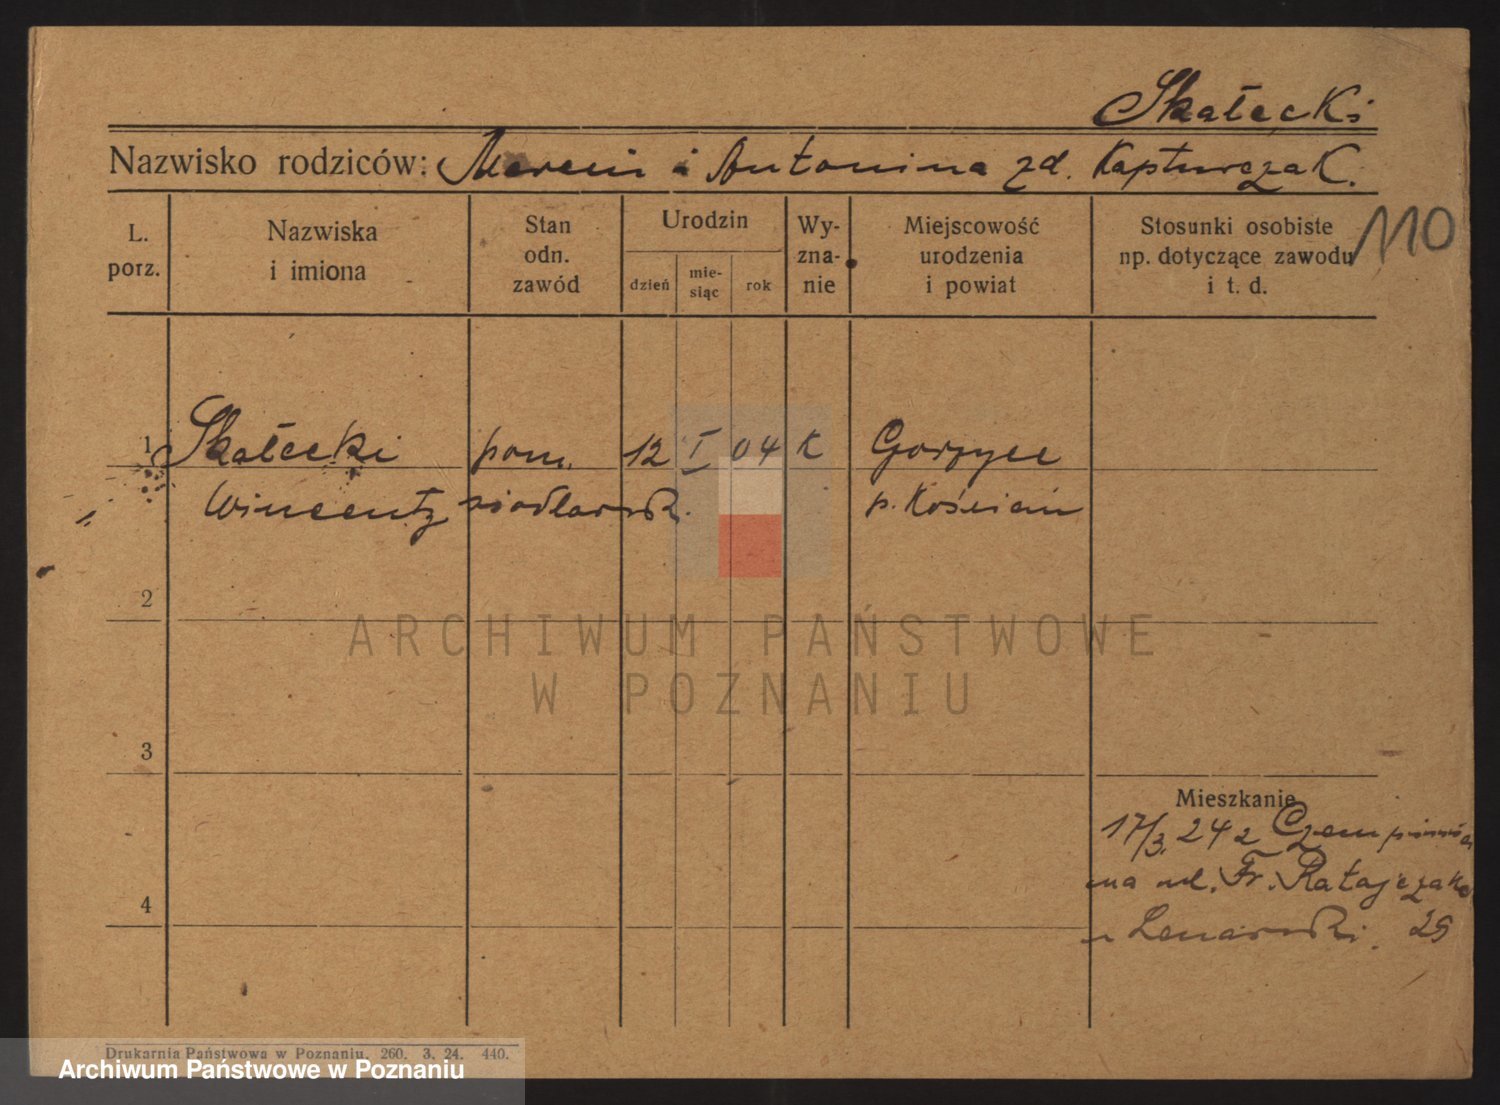 Skałecki
Nazwisko rodziców: Marcin i Antonina zd. Kapturczak.
110
L. porz.
Nazwiska i imiona
Stan odn. zawód
Urodzin
dzień
mie-siąc
rok
Wy-zna-nie
Miejscowość urodzenia i powiat
Stosunki osobiste np. dotyczące zawodu i t. d.
1 Skałecki pom. 12 I 04 K Gorzyce
Wincenty siodlarsk. p. Kościan
2
ARCHIWUM PAŃSTWOWE
W POZNANIU
3
Mieszkanie
17/3. 24 z Czempinia
na ul. Fr. Ratajczaka
4
u 29
Drukarnia Państwowa w Poznaniu. 260. 3. 24. 440.
Archiwum Państwowe w Poznaniu